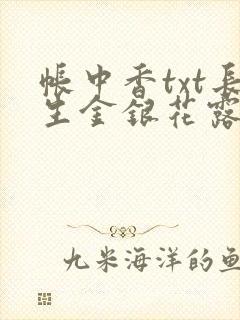 帳中香txt長
生金銀花露
九米海洋的魚